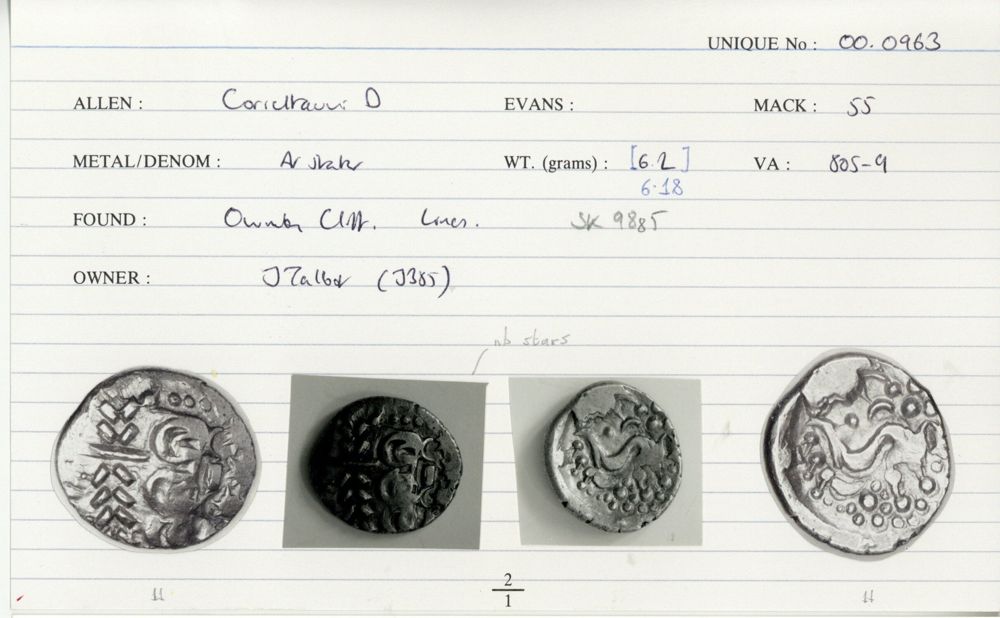 UNIQUE No : 00.0963
ALLEN : Corieltauvi D EVANS : MACK : 55
METAL/DENOM : AV stater WT. (grams) : [6.2] VA : 805-9
6.18
FOUND : Owmby Cliff. Lincs. SK 9885
OWNER : J Talbot (J385)
nb stars
2
1